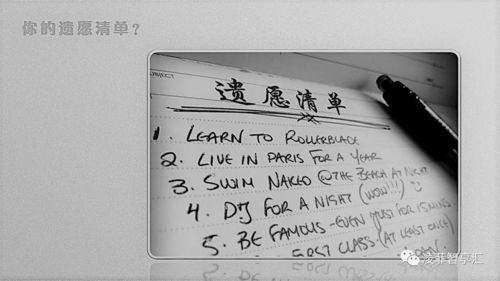 你的遗愿清单？
遗愿清单
1. LEARN TO ROLLERBLADE
2. LIVE IN PARIS FOR A YEAR
3. SWIM NAKED @ THE BEACH AT NIGHT
4. DJ FOR A NIGHT (WOW!!!)
5. BE FAMOUS - EVEN JUST FOR 15 MINS
FIRST CLASS (AT LEAST ONCE)
凌菲智享汇